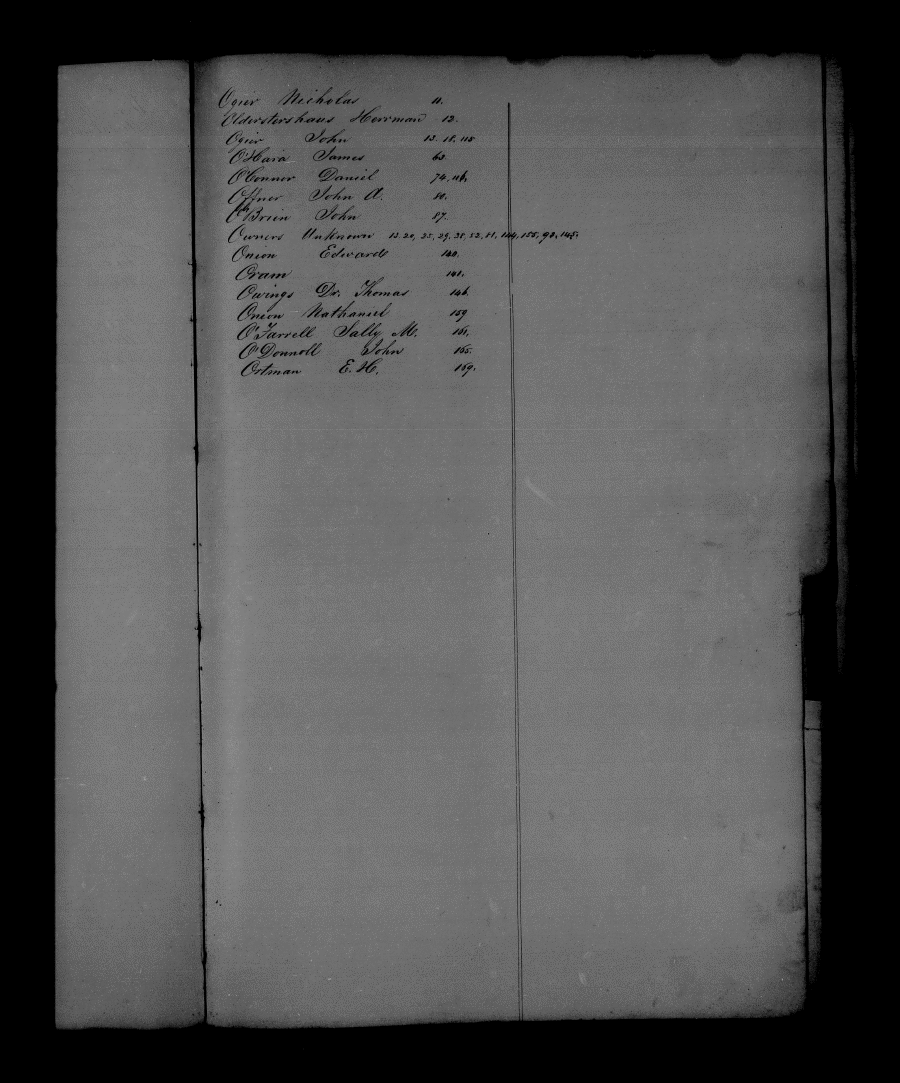 Ogier Nicholas 11.
Olderstershaus Herrman 12.
Ogier John 13. 18. 118
O'Hara James 63
O'Connor Daniel 74, 116.
Offner John A. 80.
O'Brien John 87.
Owners Unknown 13. 20, 25, 29, 38, 52, 81, 144, 155, 93, 145.
Onion Edward 140.
Oram 141.
Owings Dr. Thomas 146.
Onion Nathaniel 159
O'Farrell Sally M. 161.
O'Donnoll John 165.
Ortman E. H. 169.